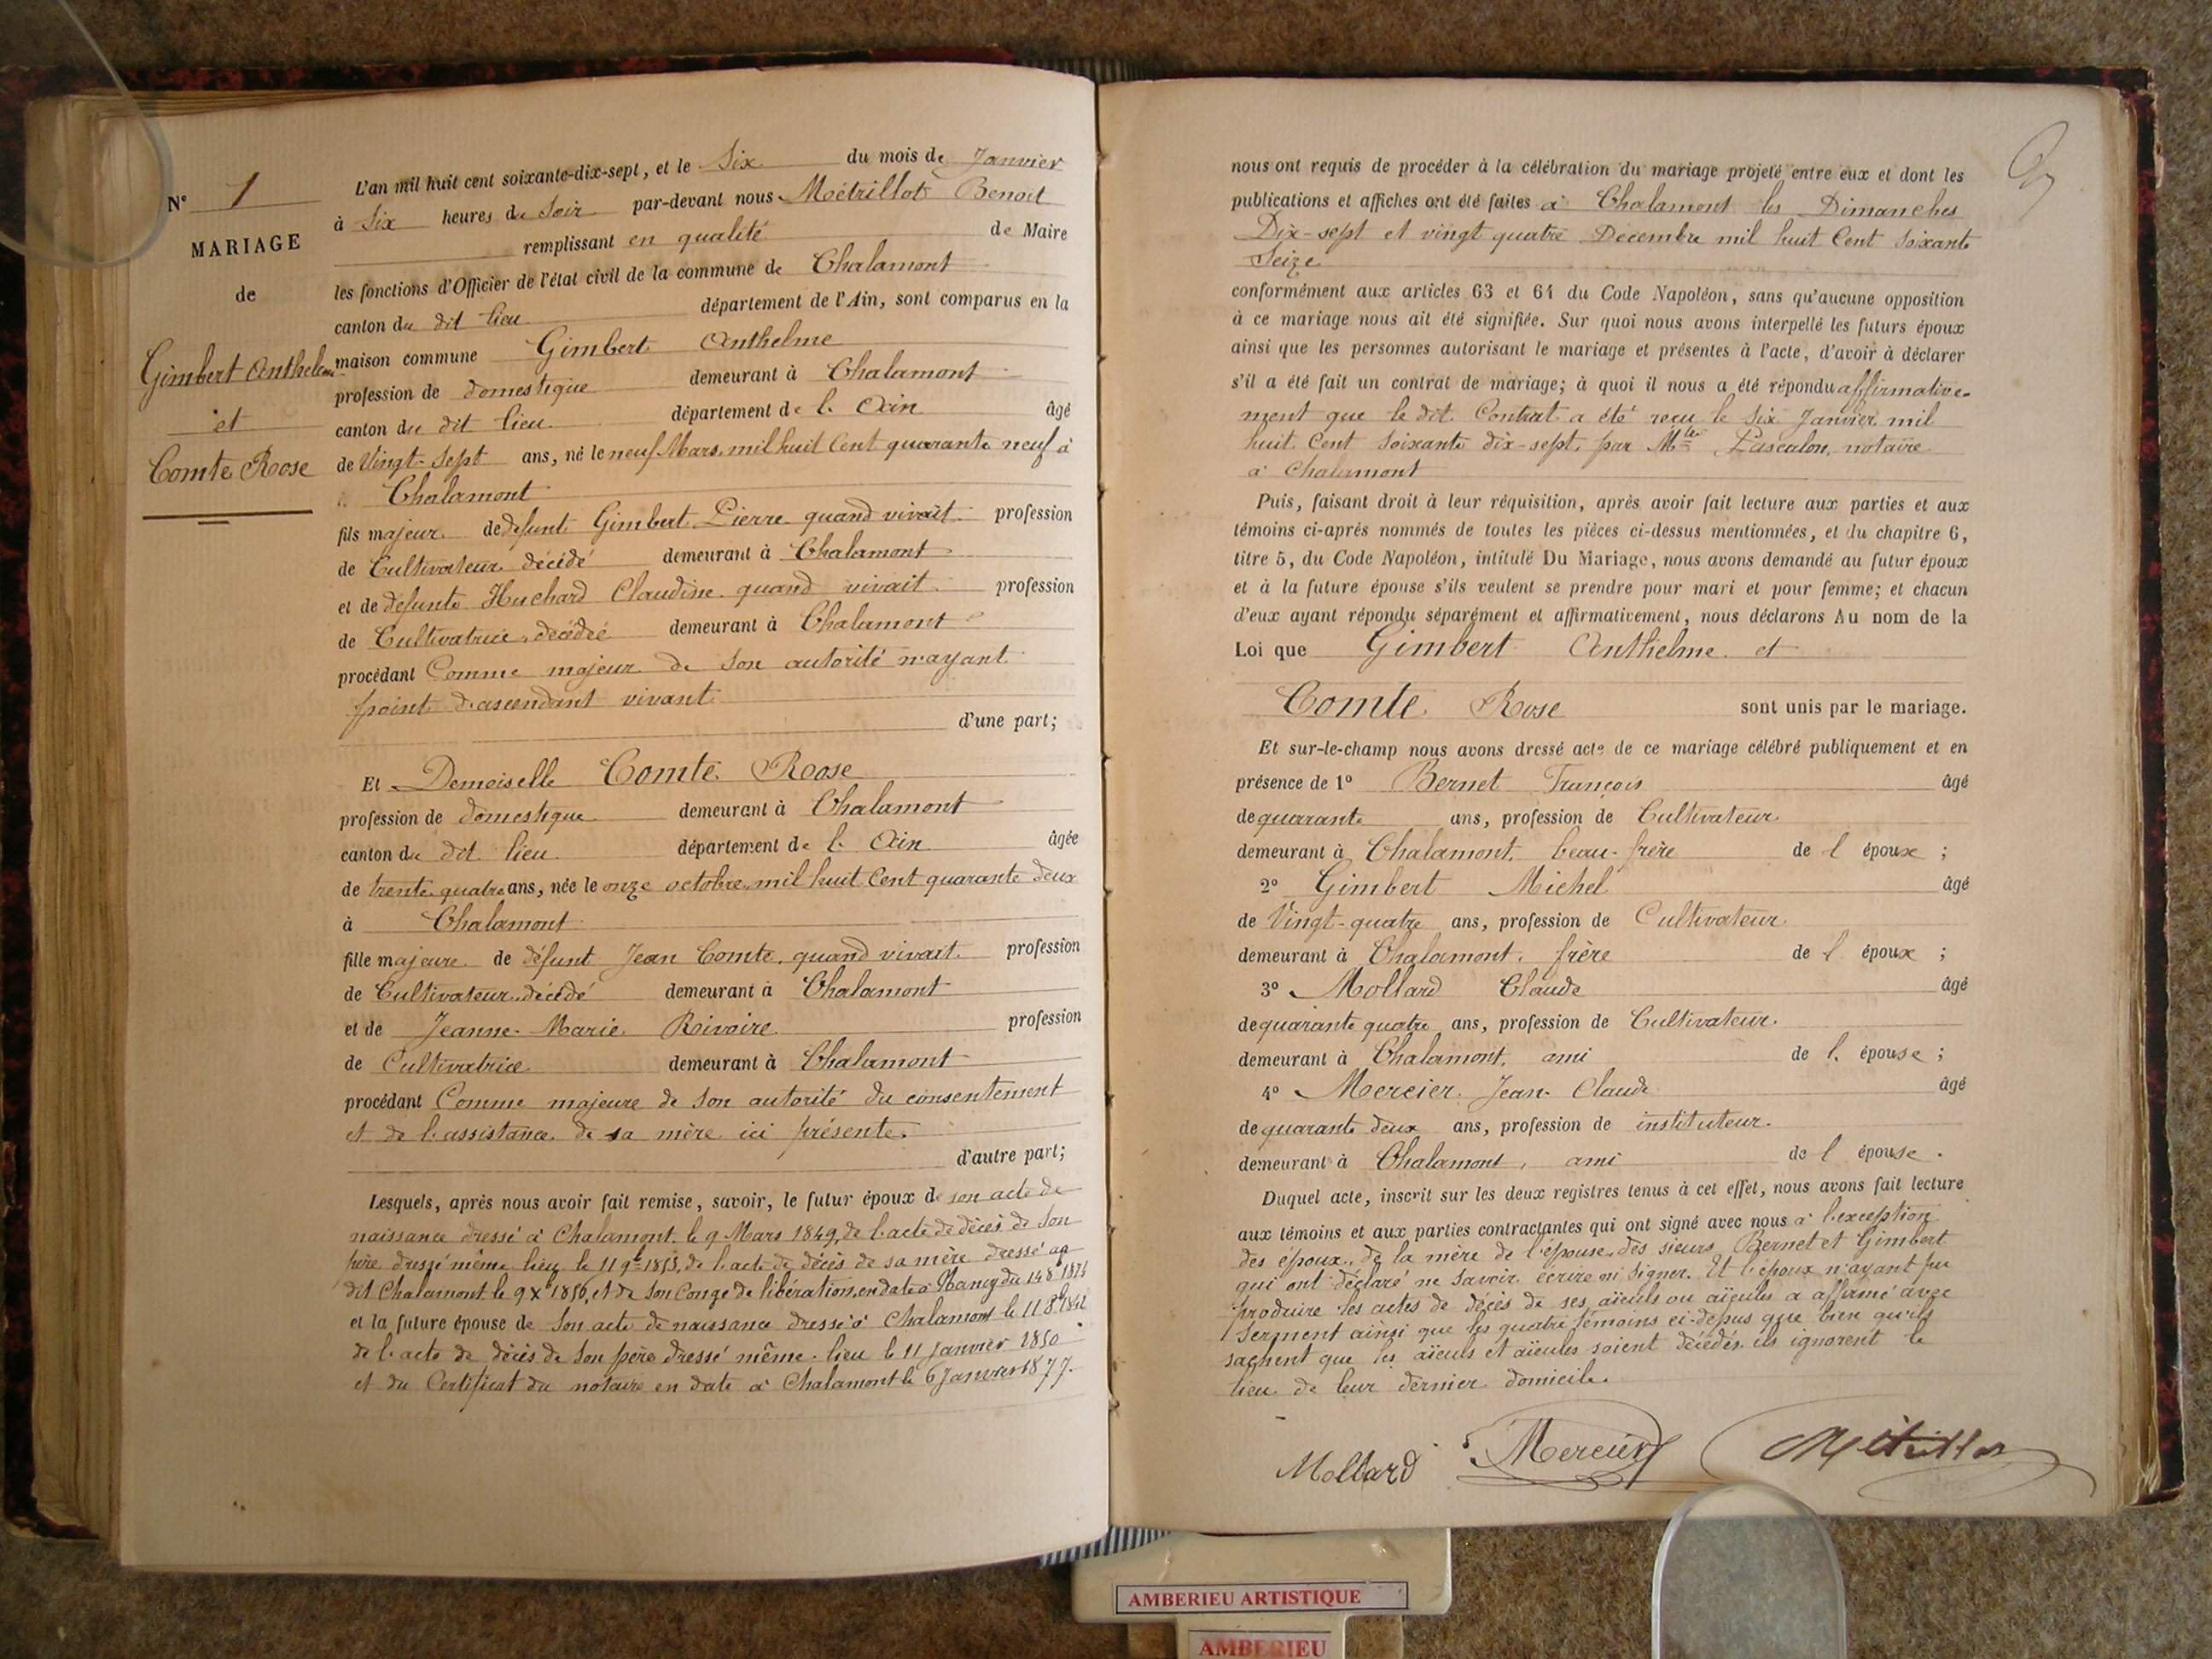 N° 1
MARIAGE
de
Gimbert Anthelme
et
Comte Rose
L'an mil huit cent soixante-dix-sept, et le Six du mois de Janvier
à Six heures du Soir par-devant nous Métrillot Benoit
remplissant en qualité de Maire
les fonctions d'Officier de l'état civil de la commune de Chalamont
canton du dit lieu département de l'Ain, sont comparus en la
maison commune Gimbert Anthelme
profession de domestique demeurant à Chalamont
canton du dit lieu département de l'Ain âgé
de Vingt-Sept ans, né le neuf Mars mil huit Cent quarante neuf à
Chalamont
fils majeur de défunt Gimbert Pierre quand vivait profession
de Cultivateur décédé demeurant à Chalamont
et de défunte Huchard Claudine quand vivait profession
de Cultivatrice, décédée demeurant à Chalamont
procédant Comme majeur de Son autorité n'ayant
point d'ascendant vivant
d'une part;
Et Demoiselle Comte Rose
profession de domestique demeurant à Chalamont
canton du dit lieu département de l'Ain âgée
de trente quatre ans, née le onze octobre mil huit Cent quarante deux
à Chalamont
fille majeure de défunt Jean Comte, quand vivait profession
de Cultivateur décédé demeurant à Chalamont
et de Jeanne-Marie Rivoire profession
de Cultivatrice demeurant à Chalamont
procédant Comme majeure de Son autorité du consentement
et de l'assistance de sa mère ici présente.
d'autre part;
Lesquels, après nous avoir fait remise, savoir, le futur époux de son acte de
naissance dressé à Chalamont le 9 Mars 1849, de l'acte de décès de Son
père dressé même lieu le 11 9bre 1853, de l'acte de décès de sa mère dressé au
dit Chalamont le 9 Xbre 1856, et de Son Congé de libération, en date à Nancy du 14 8bre
et la future épouse de Son acte de naissance dressé à Chalamont le 11 8bre 1842
de l'acte de décès de Son père dressé même lieu le 11 Janvier 1850
et du Certificat du notaire en date à Chalamont le 6 Janvier 1877.
nous ont requis de procéder à la célébration du mariage projeté entre eux et dont les
publications et affiches ont été faites à Chalamont les Dimanches
Dix-sept et vingt quatre Décembre mil huit Cent Soixante
Seize
conformément aux articles 63 et 64 du Code Napoléon, sans qu'aucune opposition
à ce mariage nous ait été signifiée. Sur quoi nous avons interpellé les futurs époux
ainsi que les personnes autorisant le mariage et présentes à l'acte, d'avoir à déclarer
s'il a été fait un contrat de mariage; à quoi il nous a été répondu affirmative-
ment que le dit Contrat a été reçu le Six Janvier mil
huit Cent Soixante dix-sept, par Mtre Pascalon, notaire
à Chalamont
Puis, faisant droit à leur réquisition, après avoir fait lecture aux parties et aux
témoins ci-après nommés de toutes les pièces ci-dessus mentionnées, et du chapitre 6,
titre 5, du Code Napoléon, intitulé Du Mariage, nous avons demandé au futur époux
et à la future épouse s'ils veulent se prendre pour mari et pour femme; et chacun
d'eux ayant répondu séparément et affirmativement, nous déclarons Au nom de la
Loi que Gimbert Anthelme et
Comte Rose sont unis par le mariage.
Et sur-le-champ nous avons dressé acte de ce mariage célébré publiquement et en
présence de 1° Bernet François âgé
de quarante ans, profession de Cultivateur
demeurant à Chalamont, beau-frère de l'époux ;
2° Gimbert Michel âgé
de Vingt-quatre ans, profession de Cultivateur
demeurant à Chalamont, frère de l'époux ;
3° Mollard Claude âgé
de quarante quatre ans, profession de Cultivateur.
demeurant à Chalamont, ami de l'épouse ;
4° Mercier Jean-Claude âgé
de quarante deux ans, profession de instituteur.
demeurant à Chalamont, ami de l'épouse.
Duquel acte, inscrit sur les deux registres tenus à cet effet, nous avons fait lecture
aux témoins et aux parties contractantes qui ont signé avec nous à l'exception
des époux, de la mère de l'épouse, des sieurs Bernet et Gimbert
qui ont déclaré ne Savoir écrire ni Signer. Et l'époux n'ayant pu
produire les actes de décès de ses aïeuls ou aïeules a affirmé avec
Serment ainsi que les quatre témoins ci-dessus que bien qu'ils
sachent que les aïeuls et aïeules soient décédés, ils ignorent le
lieu de leur dernier domicile.
Mollard Mercier Métrillot
AMBERIEU ARTISTIQUE
AMBERIEU